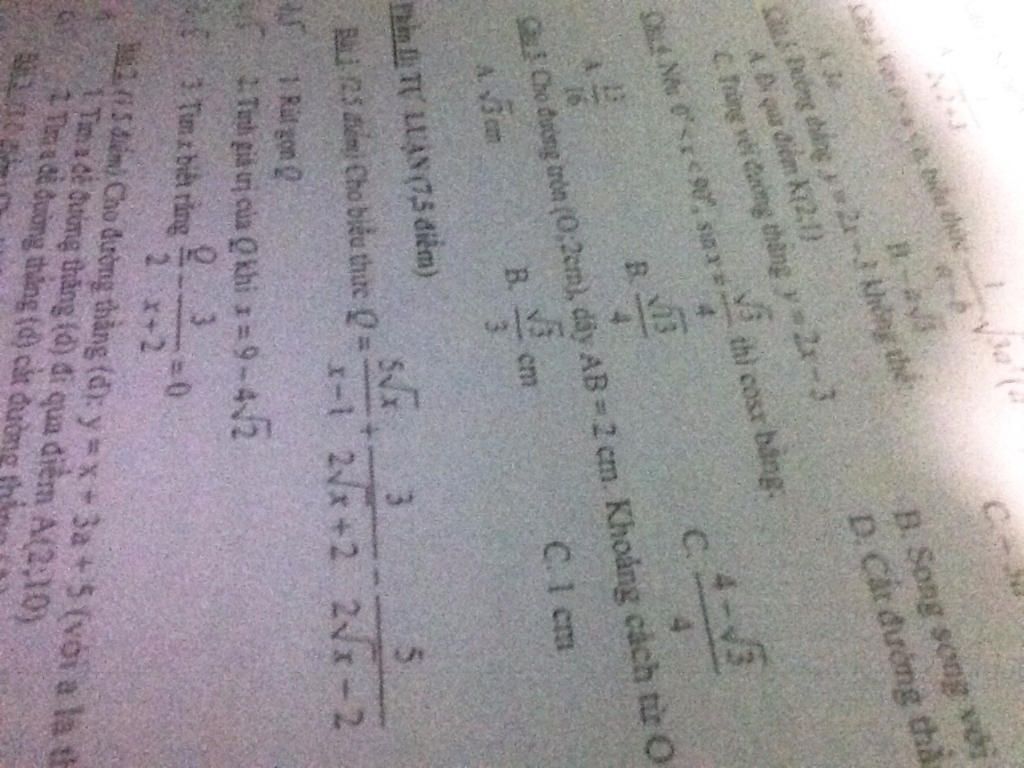 Với 0 < a < b, biểu thức 1/(a-b) √3a²(a
B. -a√3
A. 3a
C. -3a
Câu 3. Đường thẳng y = 2x - 3 không thể
A. Đi qua điểm K(2;1)
B. Song song với
C. Trùng với đường thẳng y = 2x - 3
D. Cắt đường thẳ
Câu 4. Nếu 0° < x < 90°, sin x = √3/4 thì cosx bằng:
A. 13/16
B. √13/4
C. (4-√3)/4
Câu 5. Cho đường tròn (O;2cm), dây AB = 2 cm. Khoảng cách từ O
A. √3 cm
B. √3/3 cm
C. 1 cm
Phần II: TỰ LUẬN (7,5 điểm)
Bài 1. (2,5 điểm) Cho biểu thức Q = 5√x/(x-1) + 3/(2√x+2) - 5/(2√x-2)
1. Rút gọn Q
2. Tính giá trị của Q khi x = 9 - 4√2
3. Tìm x biết rằng Q/2 - 3/(x+2) = 0
Bài 2. (1,5 điểm) Cho đường thẳng (d): y = x + 3a + 5 (với a là th
1. Tìm a để đường thẳng (d) đi qua điểm A(2;10)
2. Tìm a để đường thẳng (d) cắt đường thẳng